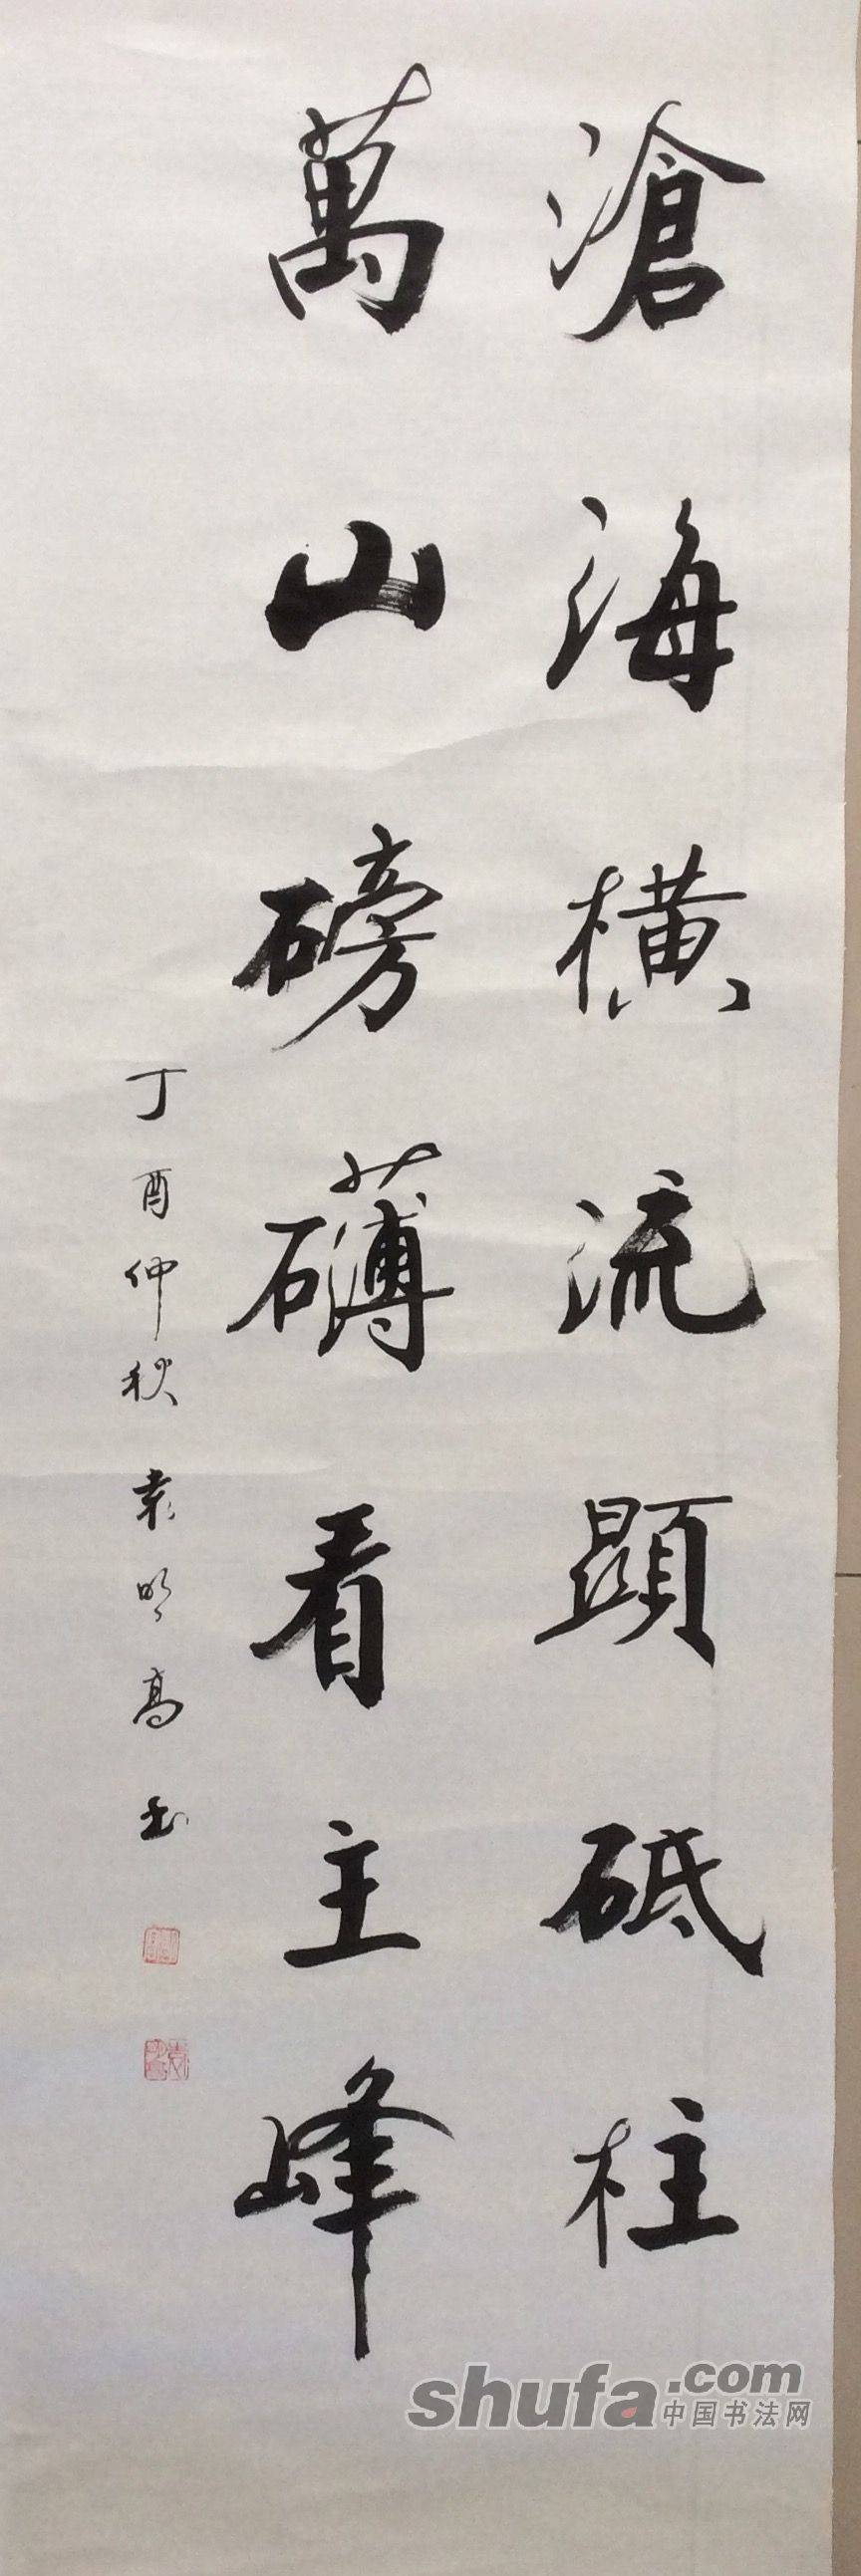 滄海橫流顯砥柱
萬山磅礴看主峰
丁酉仲秋袁明高书
shufa.com
中国书法网